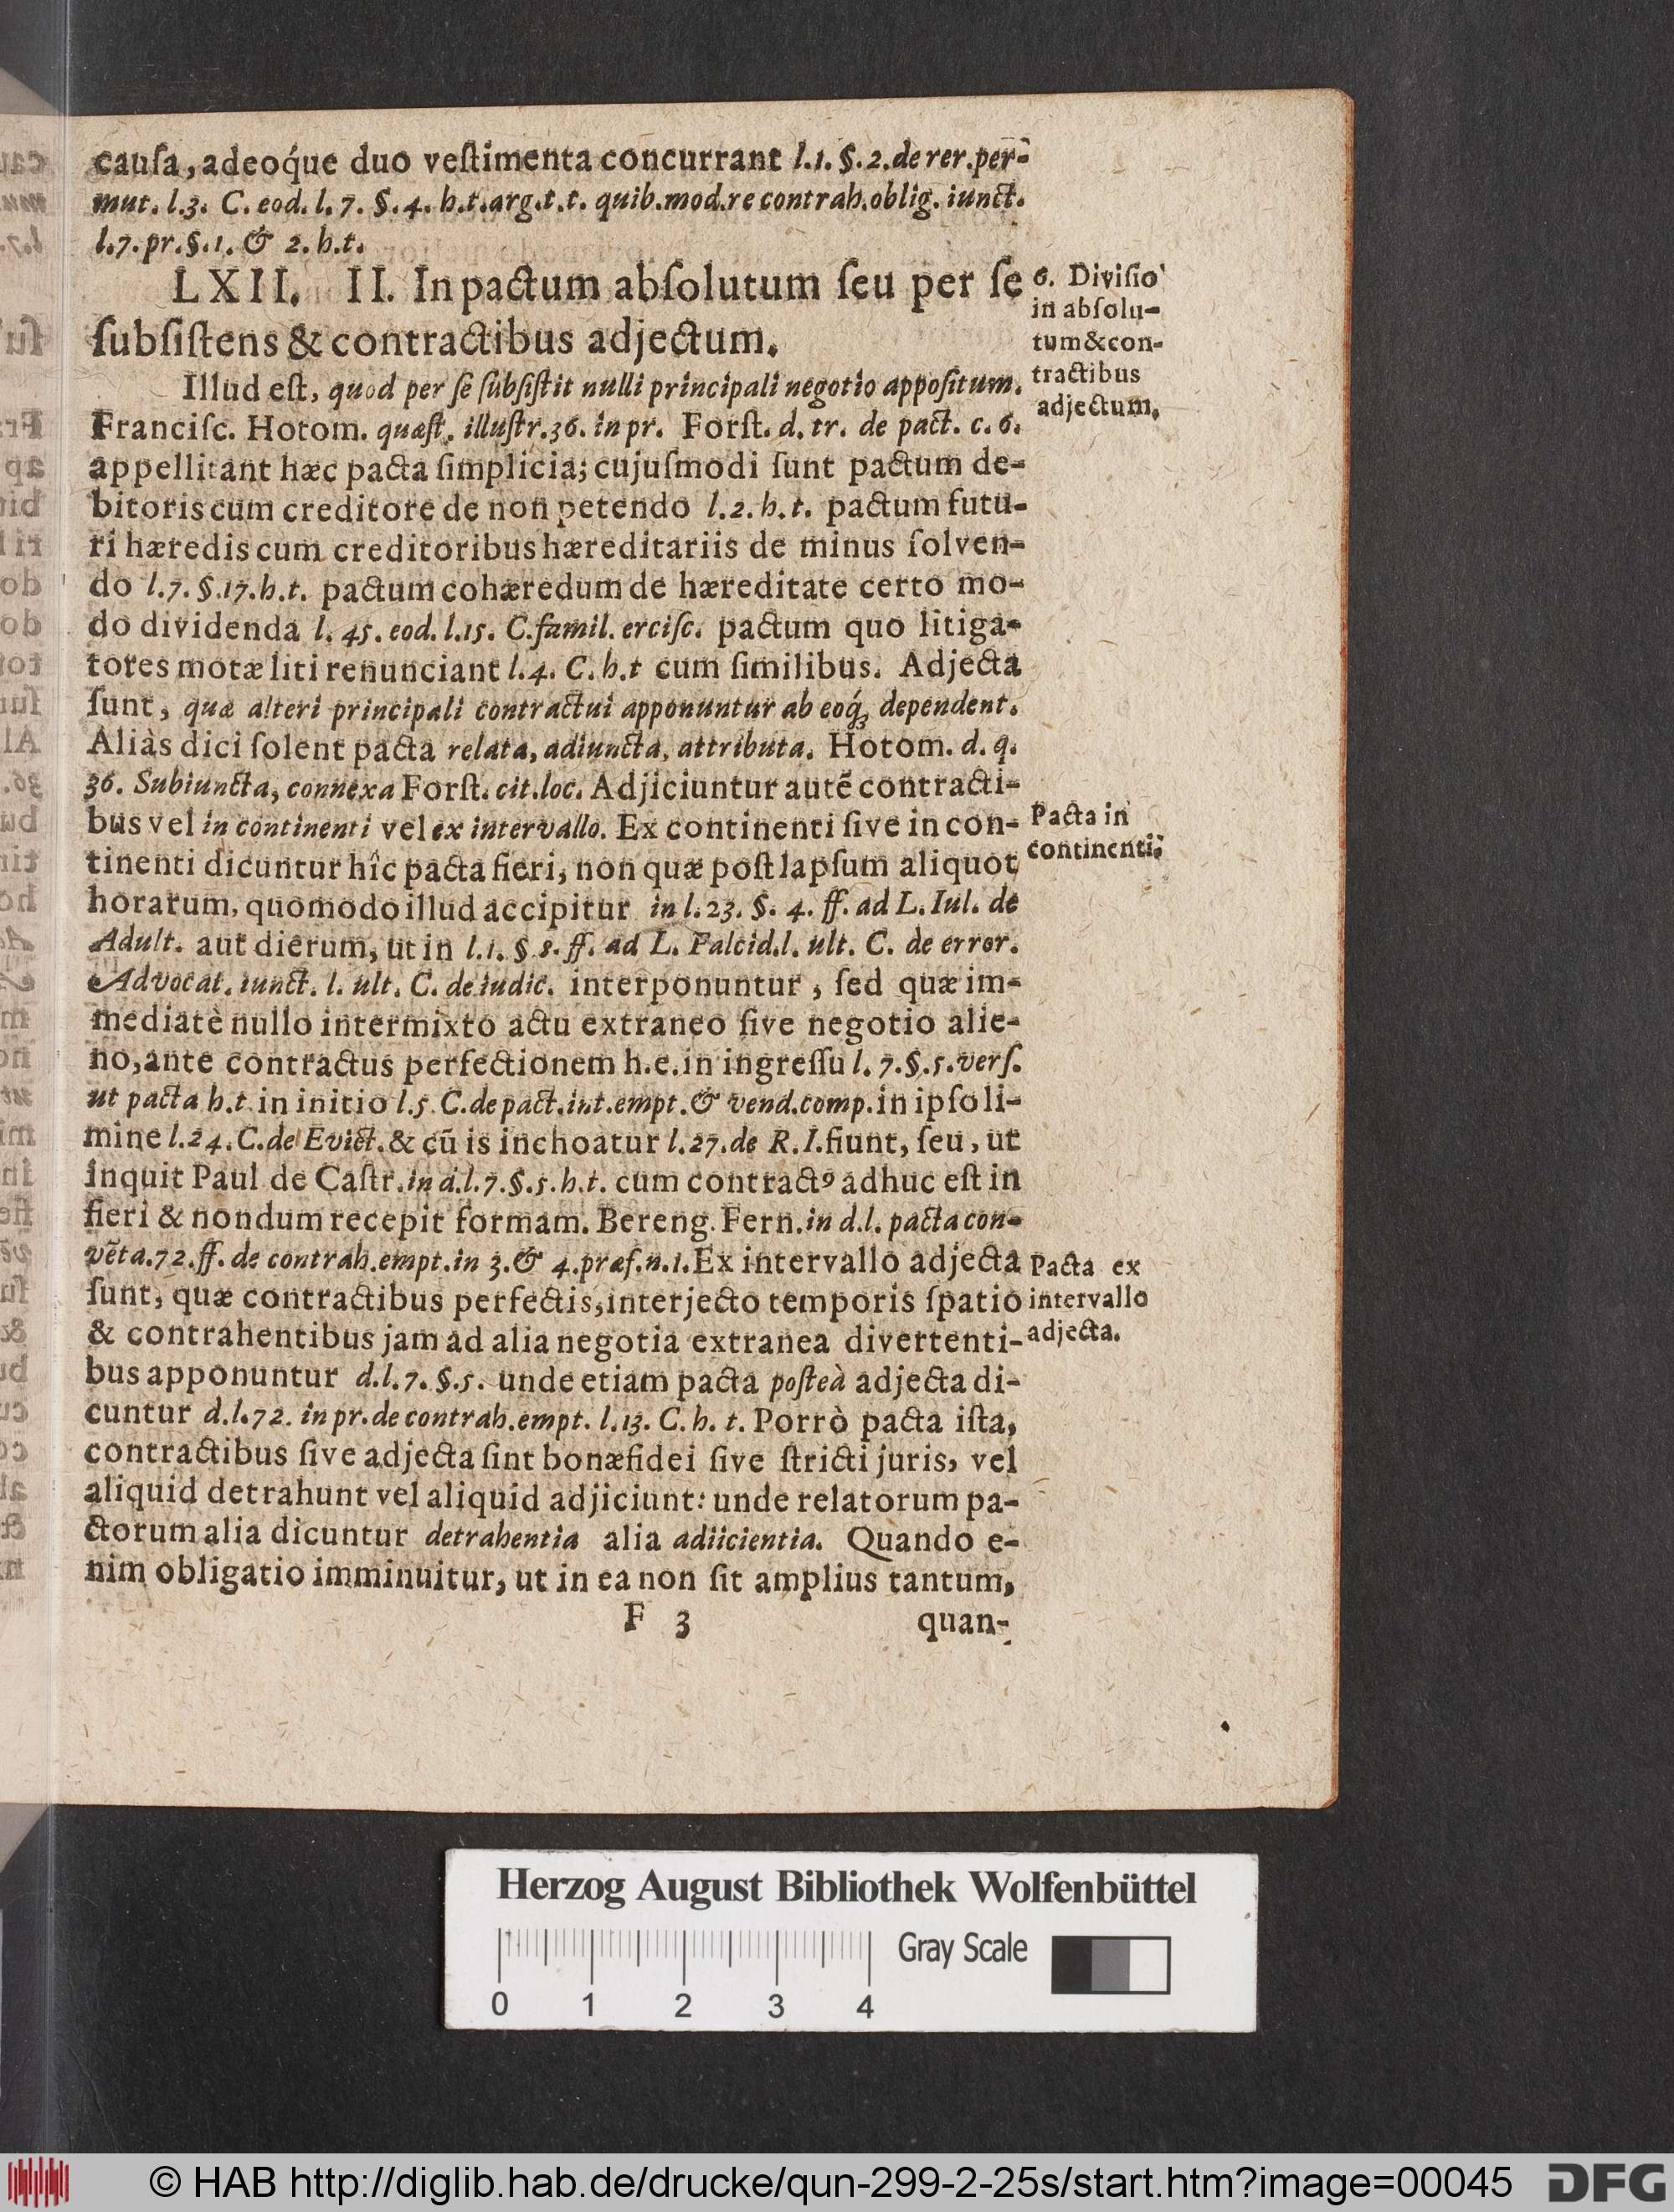 cauſa, adeoq́ue duo veſtimenta concurrant l.1. §.2. de rer. per-
mut. l.3. C. eod. l.7. §.4. h.t. arg. t.t. quib. mod. re contrah. oblig. iunct.
l.7. pr. §.1. & 2. h.t.
LXII. II. In pactum abſolutum ſeu per ſe
ſubſiſtens & contractibus adjectum.
6. Diviſio
in abſolu-
tum & con-
tractibus
adjectum.
Illud eſt, quod per ſe ſubſiſtit nulli principali negotio appoſitum.
Franciſc. Hotom. quæſt. illuſtr. 36. in pr. Forſt. d. tr. de pact. c. 6.
appellitant hæc pacta ſimplicia; cujuſmodi ſunt pactum de-
bitoris cum creditore de non petendo l.2. h.t. pactum futu-
ri hæredis cum creditoribus hæreditariis de minus ſolven-
do l.7. §.17. h.t. pactum cohæredum de hæreditate certo mo-
do dividenda l. 45. eod. l.15. C. famil. erciſc. pactum quo litiga-
tores motæ liti renunciant l.4. C. h.t cum ſimilibus. Adjecta
ſunt, quæ alteri principali contractui apponuntur ab eoq́ꝫ dependent.
Aliàs dici ſolent pacta relata, adiuncta, attributa. Hotom. d. q.
36. Subiuncta, connexa Forſt. cit. loc. Adjiciuntur autẽ contracti-
bus vel in continenti vel ex intervallo. Ex continenti ſive in con-
tinenti dicuntur hîc pacta fieri, non quæ poſt lapſum aliquot
Pacta in
continenti.
horarum, quomodo illud accipitur in l.23. §. 4. ff. ad L. Iul. de
Adult. aut dierum, ut in l.1. §.8. ff. ad L. Falcid. l. ult. C. de error.
Advocat. iunct. l. ult. C. de iudic. interponuntur, ſed quæ im-
mediatè nullo intermixto actu extraneo ſive negotio alie-
no, ante contractus perfectionem h.e. in ingreſſu l. 7. §.5. verſ.
ut pacta h.t. in initio l.5. C. de pact. int. empt. & vend. comp. in ipſo li-
mine l.24. C. de Evict. & cũ is inchoatur l.27. de R. I. fiunt, ſeu, ut
inquit Paul de Caſtr. in d.l.7. §.5. h.t. cum contractꝰ adhuc eſt in
fieri & nondum recepit formam. Bereng. Fern. in d.l. pacta con-
vẽta. 72. ff. de contrah. empt. in 3. & 4. præf. n.1. Ex intervallo adjecta
ſunt, quæ contractibus perfectis, interjecto temporis ſpatio
& contrahentibus jam ad alia negotia extranea divertenti-
Pacta ex
intervallo
adjecta.
bus apponuntur d.l.7. §.5. unde etiam pacta poſteà adjecta di-
cuntur d.l.72. in pr. de contrah. empt. l.13. C. h. t. Porrò pacta iſta,
contractibus ſive adjecta ſint bonæ fidei ſive ſtricti juris, vel
aliquid detrahunt vel aliquid adjiciunt: unde relatorum pa-
ctorum alia dicuntur detrahentia alia adiicientia. Quando e-
nim obligatio imminuitur, ut in ea non ſit amplius tantum,
F 3 quan-
Herzog August Bibliothek Wolfenbüttel
Gray Scale
0 1 2 3 4
© HAB http://diglib.hab.de/drucke/qun-299-2-25s/start.htm?image=00045
DFG